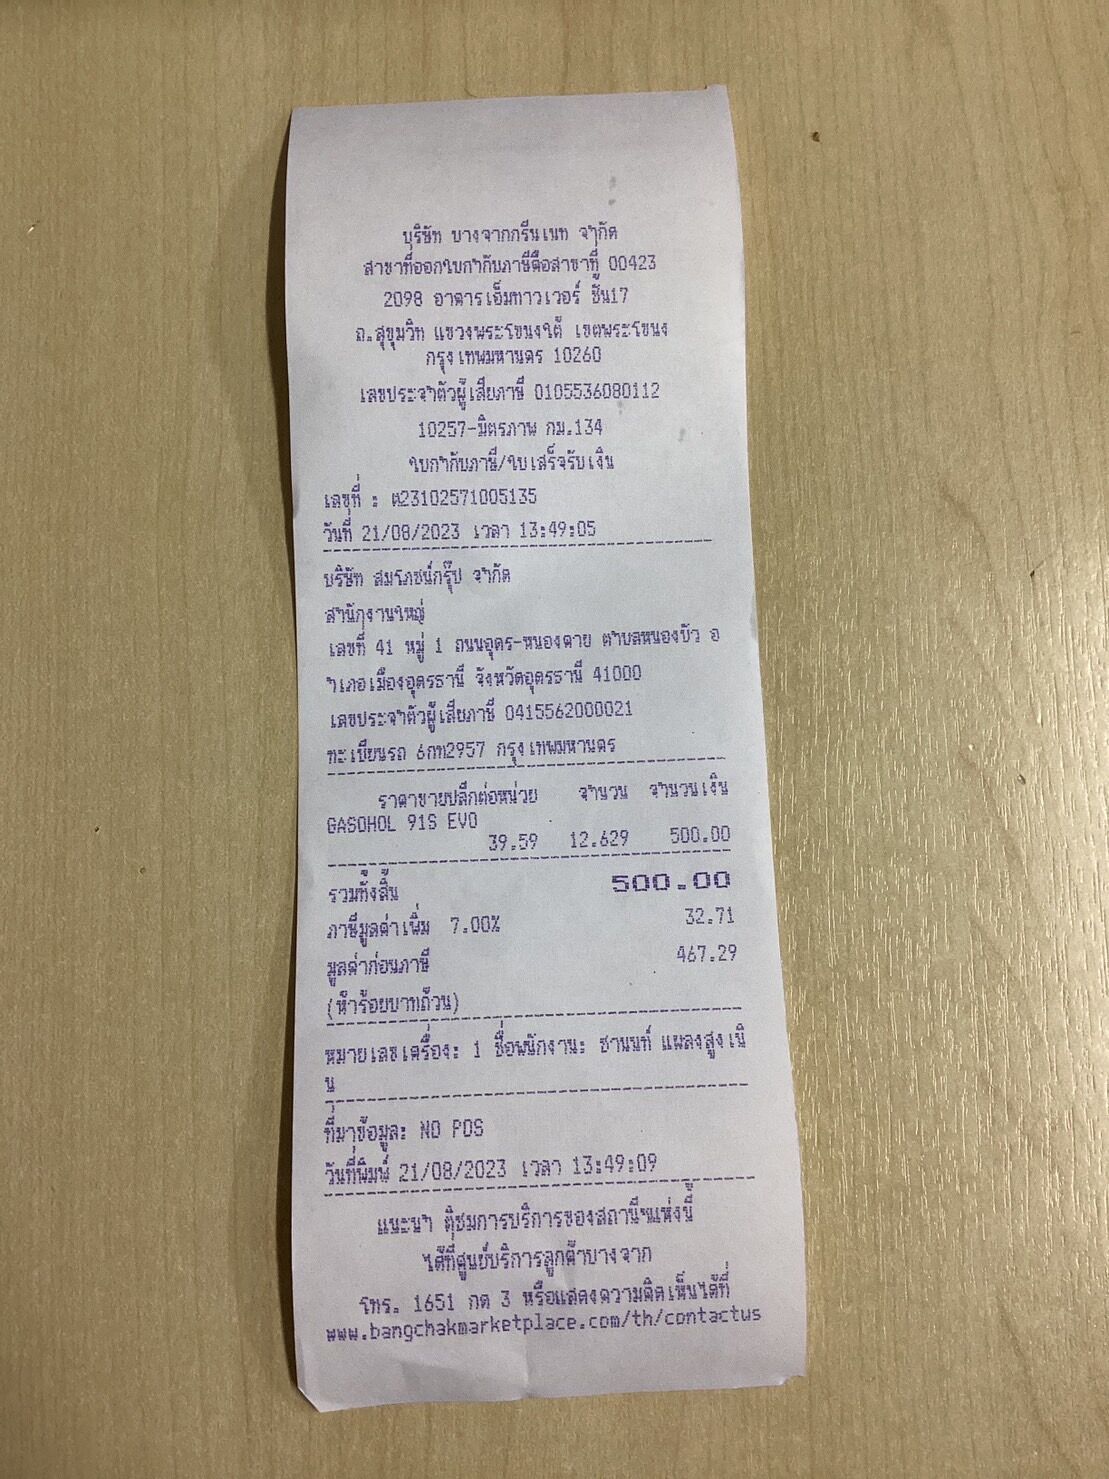 บริษัท บางจากกรีนเนท จำกัด
สาขาที่ออกใบกำกับภาษีคือสาขาที่ 00423
2098 อาคารเอ็มทาวเวอร์ ชั้น17
ถ.สุขุมวิท แขวงพระโขนงใต้ เขตพระโขนง
กรุงเทพมหานคร 10260
เลขประจำตัวผู้เสียภาษี 0105536080112
10257-มิตรภาพ กม.134
ใบกำกับภาษี/ใบเสร็จรับเงิน
เลขที่ : ต23102571005135
วันที่ 21/08/2023 เวลา 13:49:05
บริษัท สมโภชน์กรุ๊ป จำกัด
สำนักงานใหญ่
เลขที่ 41 หมู่ 1 ถนนอุดร-หนองคาย ตำบลหนองบัว อ
ำเภอเมืองอุดรธานี จังหวัดอุดรธานี 41000
เลขประจำตัวผู้เสียภาษี 0415562000021
ทะเบียนรถ 6กท2957 กรุงเทพมหานคร
ราคาขายปลีกต่อหน่วย จำนวน จำนวนเงิน
GASOHOL 91S EVO
39.59 12.629 500.00
รวมทั้งสิ้น 500.00
ภาษีมูลค่าเพิ่ม 7.00% 32.71
มูลค่าก่อนภาษี 467.29
(ห้าร้อยบาทถ้วน)
หมายเลขเครื่อง: 1 ชื่อพนักงาน: ชานนท์ แผลงสูงเนิ
น
ที่มาข้อมูล: NO POS
วันที่พิมพ์ 21/08/2023 เวลา 13:49:09
แนะนำ ติชมการบริการของสถานีฯแห่งนี้
ได้ที่ศูนย์บริการลูกค้าบางจาก
โทร. 1651 กด 3 หรือแสดงความคิดเห็นได้ที่
www.bangchakmarketplace.com/th/contactus